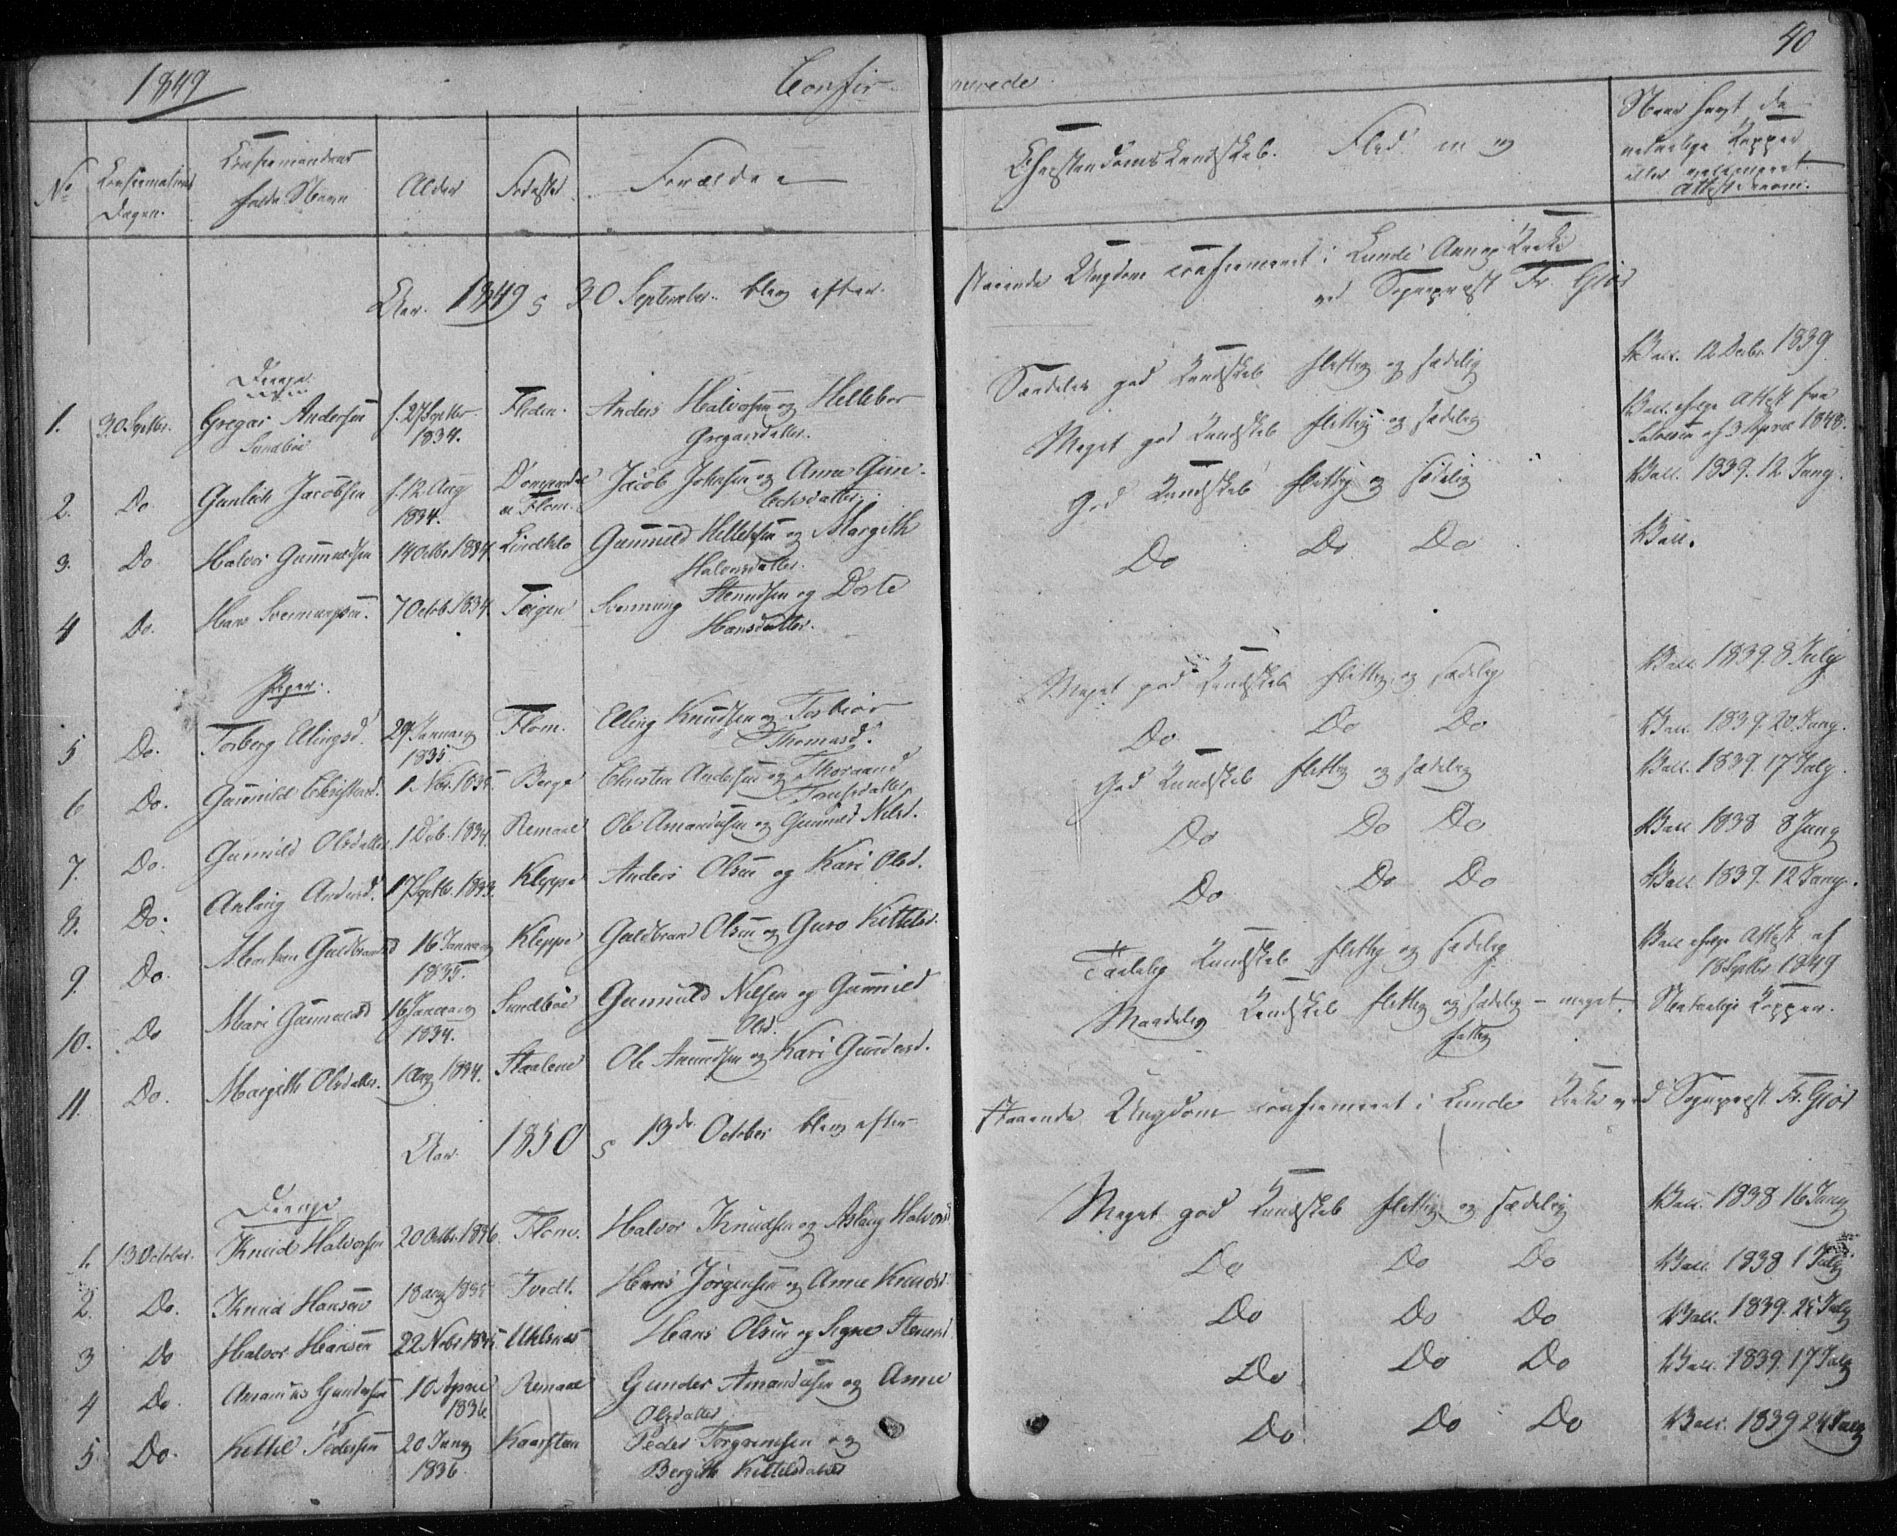 1849 Confir- merede. 40
No Confirmations Dagen. Confirmandens fulde Navn Alder Fødested Forældre
Christendoms Kundskab. Flid
Naar havt de naturlige Kopper eller vaccineret Attest derom.
Aar 1849, 30 September blev efter-
staaende Ungdom confirmeret i Lunde Annex Kirke
ved Sognepræst Fr. Gjør
Drenge
1. 30 Septbr. Gregar Andersen Sundbøe f. 27 Septbr 1834. Anders Halvorsen og Hellebor Gregarsdatter. Særdeles god Kundskab flittig og sædelig Vacc. 12 Decbr. 1839
2. Do Gunleik Jacobsen f. 12 Aug 1834. Jacob Johnsen og Anne Gunleiksdatter. Meget god Kundskab flittig og sædelig Vacc. ifølge Attest fra af 3 April 1848.
3. Do Halvor Gunnuldsen 14 Octbr 1834. Gunnuld Hellesen og Margith Halvorsdatter. God Kundskab flittig og sædelig Vacc. 1839. 12 Juny.
4 Do. Hans Svenningsen. 7 Octob. 1834. Svenning Stenudsen og Dorte Hansdatter. Do Do Do Vacc.
Piger.
5 Do. Torberg Ellingsd. 29 January 1835 Flom. Elling Knudsen og Torbiør Thomasd. Meget god Kundskab flittig og sædelig Vacc 1839. 8 July
6 Do. Gunnild Christensd. Berge Christen Andersen og Do Do Do Vacc. 1839. 20 Juny.
7. Do. Gunnild Olsdatter 1 Deb. 1834. Remaae Ole Amundsen og Gunnild Nilsd. God Kundskab flittig og sædelig Vacc. 1839. 17 July.
8. Do. Anlaug Andersd. 17 Septbr. 1833. Kleppe Anders Olsen og Kari Olsd. Do Do Do Vacc 1838 8 Juny
9. Do. Guldbrandsd 16 January 1835. Kleppe Guldbrand Olsen og Guro Kittelsd. Do Do Do Vacc 1839. 12 Juny.
10. Do Mari Gunnuldsd 16 January 1834. Sundbøe Gunnuld Nilsen og Gunnild Olsd. Taalelig Kundskab flittig og sædelig Vacc ifølge Attest af 18 Septbr 1849
11. Do. Margith Olsdatter. 1 Aug 1834. Staalene Ole Amundsen og Kari Gundersd. Maadelig Kundskab flittig og sædelig - meget fattig Naturlige Kopper.
Aar 1850, 13de October blev efter-
staaende Ungdom confirmeret i Lunde Kirke ved Sognepræst Fr. Gjør
Drenge
1. 13 October. Knud Halvorsen Flom. Halvor Knudsen og Aslaug Halvorsd Meget god Kundskab flittig og sædelig Vacc. 1838 16 Juny
2. Do. Knud Hansen Tvedt. Hans Jørgensen og Anne Knudsd Do Do Do Vacc. 1838 1 July
3 Do Halvor Hansen Hans Olsen og Signe Do Do Do Vacc. 1839. 25 July
4 Do. Amund Gundersen 10 April 1836 Remaae Gunder Amundsen og Anne Olsdatter Do Do Do Vacc. 1839. 17 July
5 Do. Kittil Pedersen 20 Juny 1836. Kaasteen Peder Torgrimsen og Bergith Kittilsdatter Do Do Do Vacc. 1839 24 July